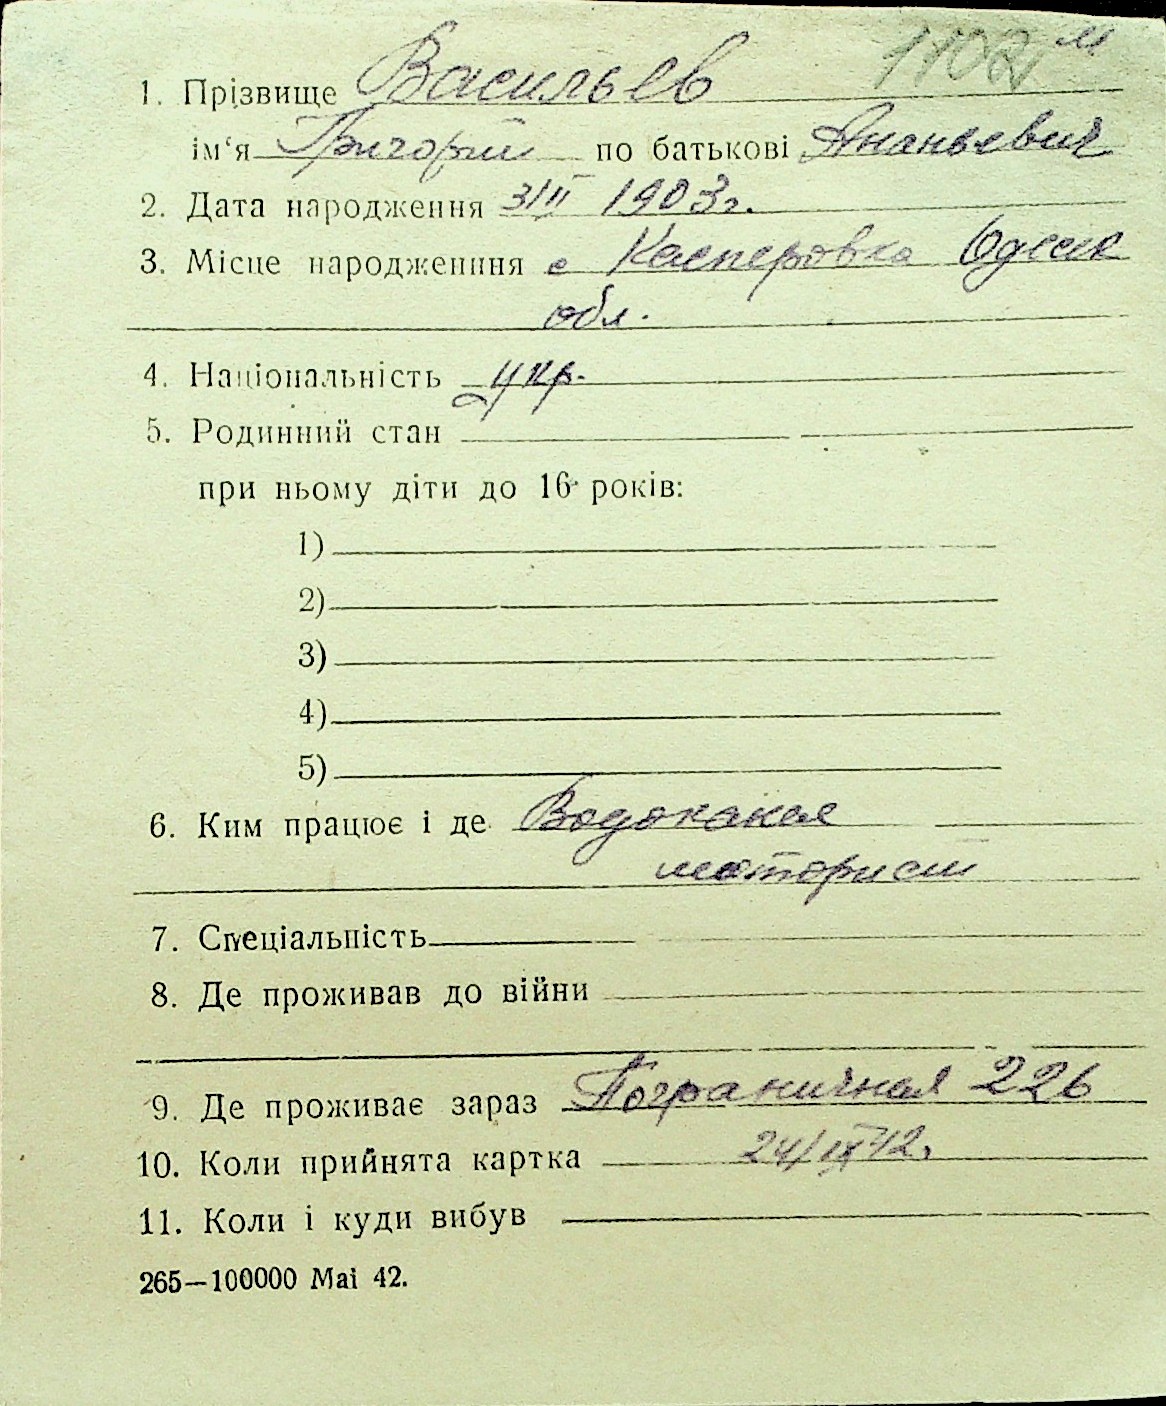 1102 м
1. Прізвище Васильев
ім‘я Григорий по батькові Ананьевич
2. Дата народження 3/II 1903 г.
3. Місце народженння с Касперовка Одесск
обл.
4. Національність укр.
5. Родинний стан
при ньому діти до 16 років:
1)
2)
3)
4)
5)
6. Ким працює і де Водоканал
моторист
7. Спеціальність
8. Де проживав до війни
9. Де проживає зараз Пограничная 226
10. Коли прийнята картка 24/IX 42.
11. Коли і куди вибув
265—100000 Mai 42.